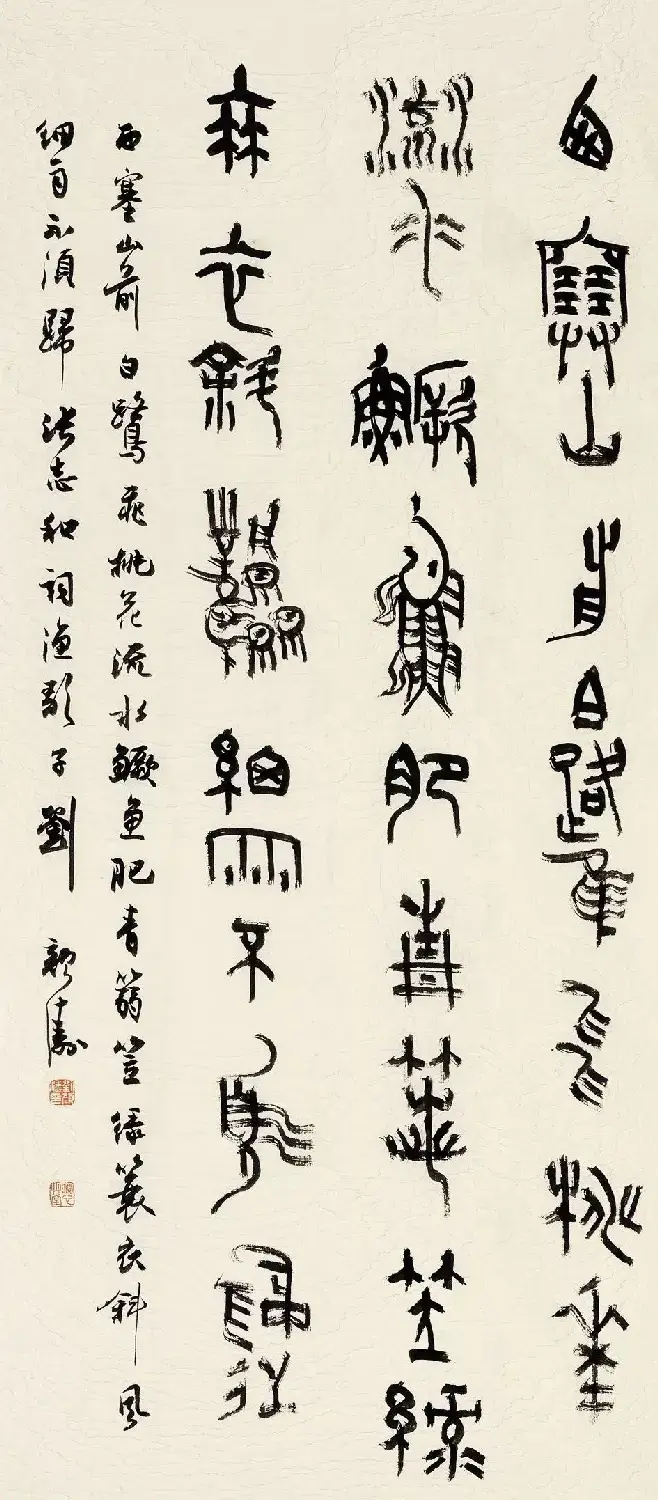 西塞山前白鹭飛桃華
流水鱖魚肥青箬笠綠
蓑衣斜風細雨不須歸
西塞山前白鹭飛桃花流水鱖魚肥青箬笠绿蓑衣斜風
細雨不須歸 张志和詞漁歌子劉顏濤